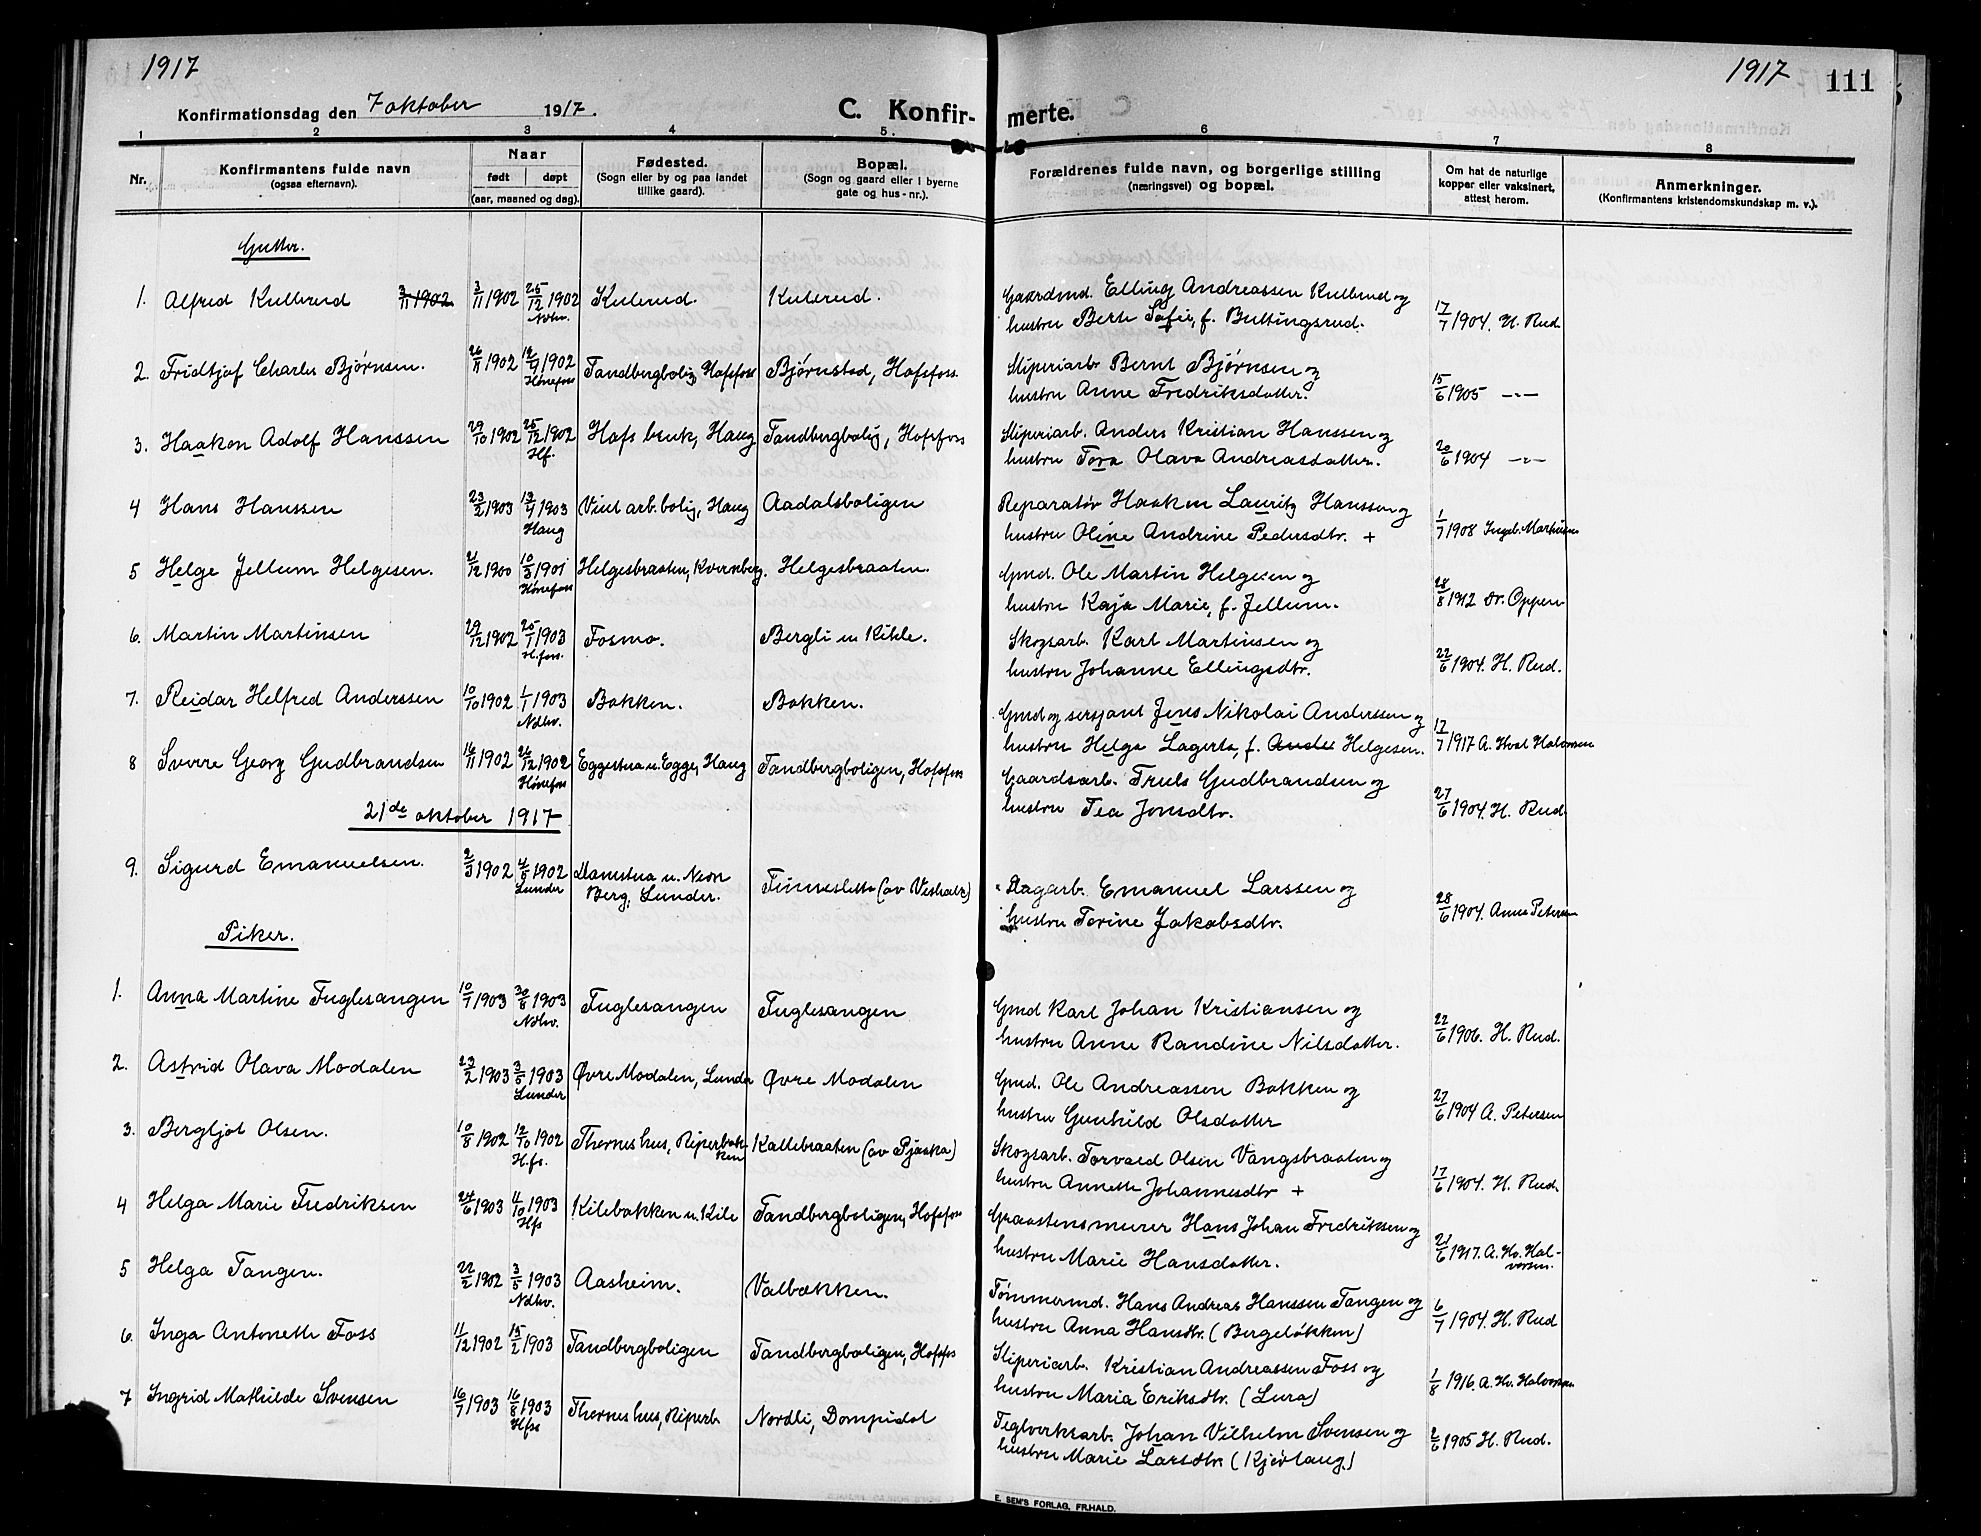 1917
1917 111
Konfirmationsdag den 7 oktober 1917.
C. Konfir-merte.
1 2 3 4 5. 6 7 8
Nr.
Konfirmantens fulde navn
(ogsaa efternavn).
Naar
født døpt
(aar, maaned og dag).
Fødested.
(Sogn eller by og paa landet
tillike gaard).
Bopæl.
(Sogn og gaard eller i byerne
gate og hus-nr.).
Forældrenes fulde navn, og borgerlige stilling
(næringsvei) og bopæl.
Om hat de naturlige
kopper eller vaksinert,
attest herom.
Anmerkninger.
(Konfirmantens kristendomskundskap m. v.).
Gutter.
1. Alfred Kullerud 3/11 1902 3/11 1902 25/12 1902 Kulerud. Kulerud. Gaardmd. Elling Andreassen Kullerud og
Ndhv. hustru Berte Sofie, f. Buttingsrud. 17/7 1904. H. Rud.
2. Fridtjof Charles Bjørnsen. 26/8 1902 19/9 1902 Tandbergbolig Hofsfoss Bjørnstad, Hofsfoss. Sliperiarb. Bernt Bjørnsen og
Hønefoss hustru Anne Fredriksdatter. 15/6 1905 —"—
3. Haakon Adolf Hanssen 29/10 1902 25/12 1902 Hofs bruk, Haug Tandbergbolig, Hofsfoss Sliperiarb. Anders Kristian Hanssen og
Hf. hustru Tora Olava Andreasdatter. 20/6 1904 —"—
4 Hans Hanssen 23/2 1903 13/4 1903 Viul arb.bolig, Haug Aadalsboligen Reparatør Haakon Lauritz Hanssen og
Haug hustru Oline Andrine Pedersdtr. + 1/7 1908 Ingeb. Martinsen
5 Helge Jellum Helgesen. 21/12 1900 10/3 1901 Helgesbraaten, Kvernberg. Helgesbraaten. Gmd. Ole Martin Helgesen og
Hønefoss hustru Kaja Marie, f. Jellum. 28/8 1912 Dr. Oppen
6. Martin Martinsen 29/12 1902 25/1 1903 Fosmo. Bergli u Kihle. Skogsarb. Karl Martinsen og
H.foss. hustru Johanne Ellingsdtr. 22/6 1904. H. Rud.
7. Reidar Helfred Anderssen 10/10 1902 1/1 1903 Bakken. Bakken. Gmd og sersjant Jens Nikolai Anderssen og
Ndhv. hustru Helga Lagerta, f. Ander Helgesen. 17/7 1917 A. Hval Halvorsen
8 Sverre Georg Gudbrandsen 16/11 1902 26/12 1902 Eggestua u. Egge, Haug Tandbergboligen, Hofsfoss Gaardsarb. Truls Gudbrandsen og
Hønefoss hustru Tea Jonsdtr. 27/6 1904. H. Rud.
21de oktober 1917
9. Sigurd Emanuelsen. 2/3 1902 4/5 1902 Damstua u. Nedre Finnesletta (av Veshalr) Dagarb. Emanuel Larssen og
Lunder Berg, Lunder. hustru Torine Jakobsdtr. 28/6 1904. Anna Petersen
Piker.
1. Anna Martine Fuglesangen 10/7 1903 30/8 1903 Fuglesangen Fuglesangen Gmd Karl Johan Kristiansen og
Ndhv. hustru Anne Randine Nilsdatter. 22/6 1906. H. Rud.
2. Astrid Olava Modalen 23/2 1903 3/5 1903 Øvre Modalen, Lunder Øvre Modalen Gmd. Ole Andreassen Bakken og
Lunder hustru Gunhild Olsdatter 27/6 1904 A. Petersen
3. Bergljot Olsen. 10/8 1902 12/10 1902 Thornes hus, Riperbakken Kallebraaten (av Pjaaka) Skogsarb. Torvald Olsen Vangsbraaten og
H.fs. hustru Annette Johannesdtr + 17/6 1904. H. Rud.
4 Helga Marie Fredriksen 24/6 1903 4/10 1903 Kilebakken u. Kile Tandbergboligen, Hofsfoss Graastensmurer Hans Johan Fredriksen og
Hfs hustru Marie Hansdatter. 21/6 1917. A. Hv. Halvorsen.
5 Helga Tangen. 22/2 1902 3/5 1903 Aasheim. Valbækken. Tømmermd. Hans Andreas Hanssen Tangen og
Ndhv. hustru Anna Hansdtr. (Bergeløkken) 6/7 1904. H. Rud
6. Inga Antonette Foss 11/12 1902 15/2 1903 Tandbergboligen Tandbergboligen, Hofsfos Sliperiarb. Kristian Andreassen Foss og
hustru Maria Eriksdtr. (Lura) 1/8 1916. A. Hv. Halvorsen
7 Ingrid Mathilde Svensen 16/7 1903 16/8 1903 Thornes hus, Riperb. Nordli, Dompidal Teglverksarb. Johan Vilhelm Svensen og
Hfss hustru Marie Larsdtr. (Kjevlaug.) 2/6 1905 H. Rud.
E. SEM'S FORLAG, FR.HALD.